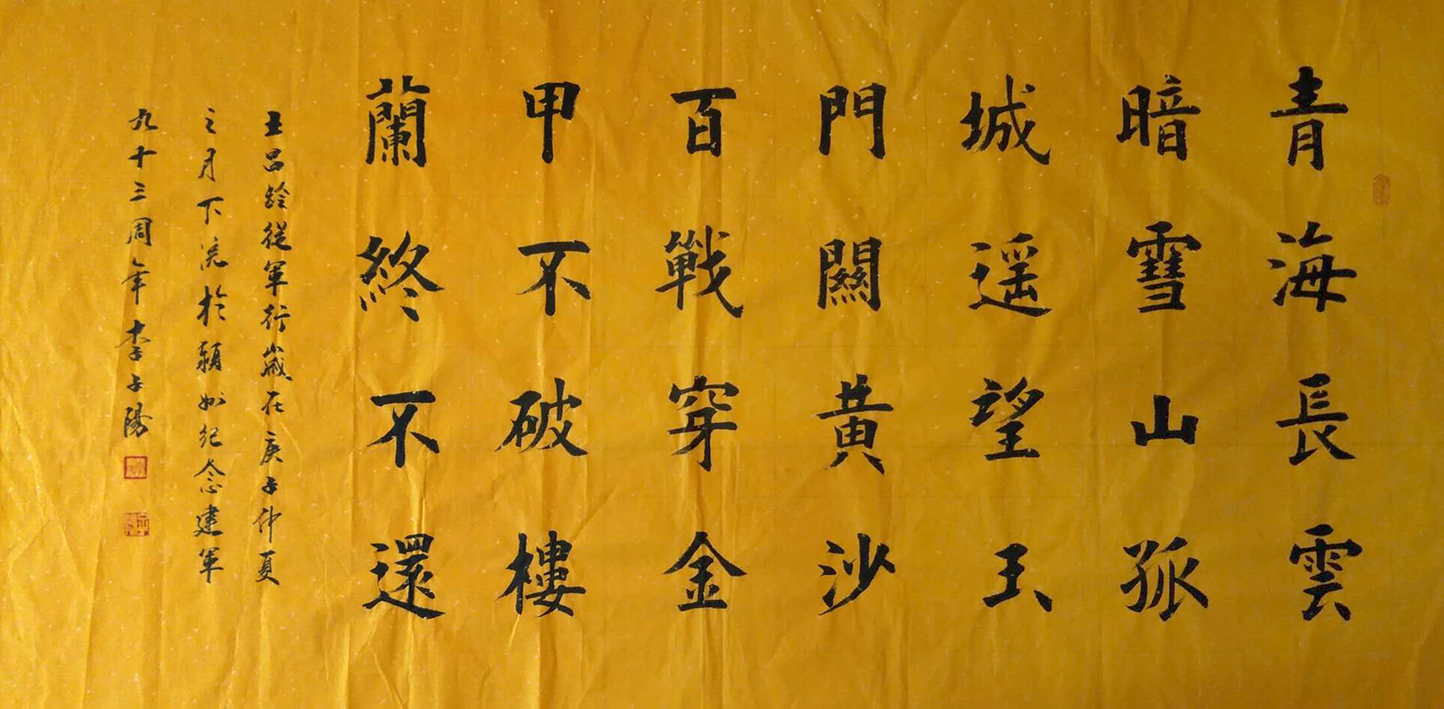 青海長雲
暗雪山孤
城遥望玉
門關黃沙
百戰穿金
甲不破樓
蘭終不還
王昌龄從軍行歲在庚子仲夏
之月下浣於潁州纪念建軍
九十三周年李子陽